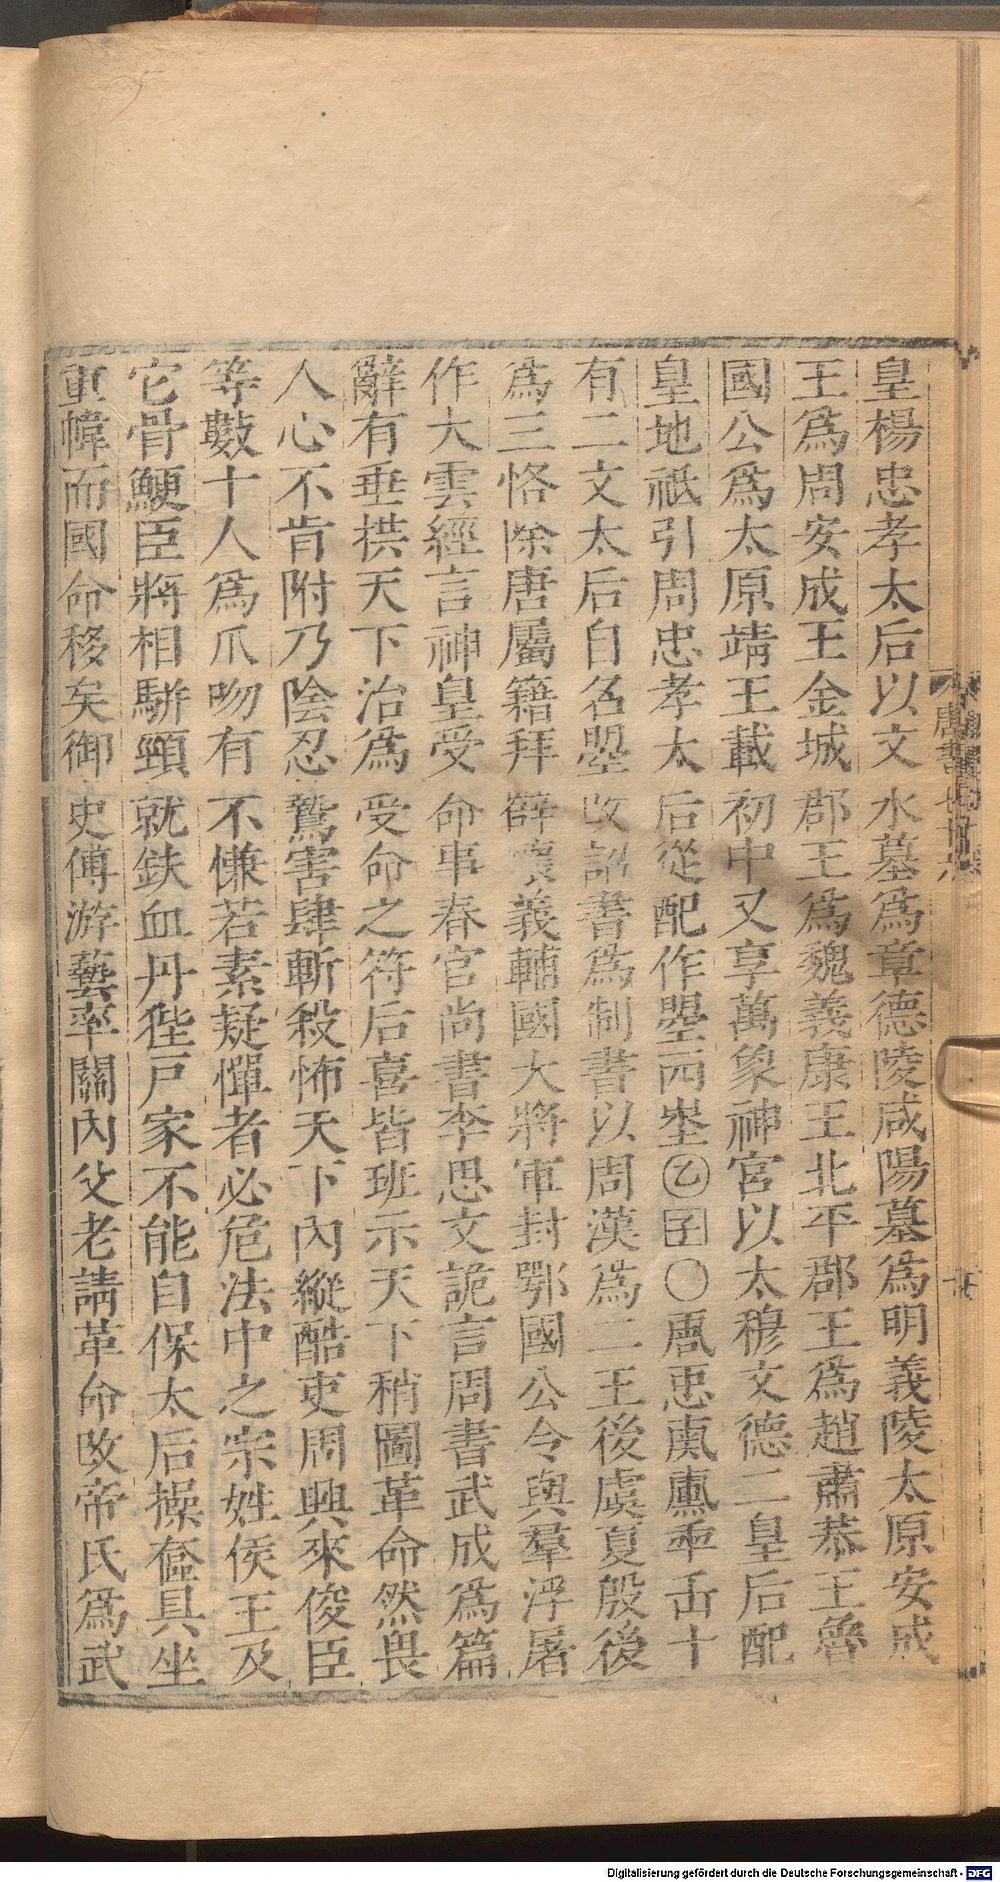 皇楊忠孝太后以文水墓爲章德陵咸陽墓爲明義陵太原安成
王爲周安成王金城郡王爲魏義康王北平郡王爲趙肅恭王魯
國公爲太原靖王載初中又享萬象神宮以太穆文德二皇后配
皇地祇引周忠孝太后從配作曌埊𡆠囝〇十
有二文太后自名曌改詔書爲制書以周漢爲二王後虞夏殷後
爲三恪除唐屬籍拜薛懷義輔國大將軍封鄂國公令與羣浮屠
作大雲經言神皇受命事春官尚書李思文詭言周書武成爲篇
辭有垂拱天下治爲受命之符后喜皆班示天下稍圖革命然畏
人心不肯附乃陰忍鷙害肆斬殺怖天下內縱酷吏周興來俊臣
等數十人爲爪吻有不慊若素疑憚者必危法中之宗姓侯王及
它骨鯁臣將相駢頸就鈇血丹狴戶家不能自保太后操奩具坐
重幃而國命移矣御史傅游藝率關內父老請革命改帝氏爲武
Digitalisierung gefördert durch die Deutsche Forschungsgemeinschaft - DFG